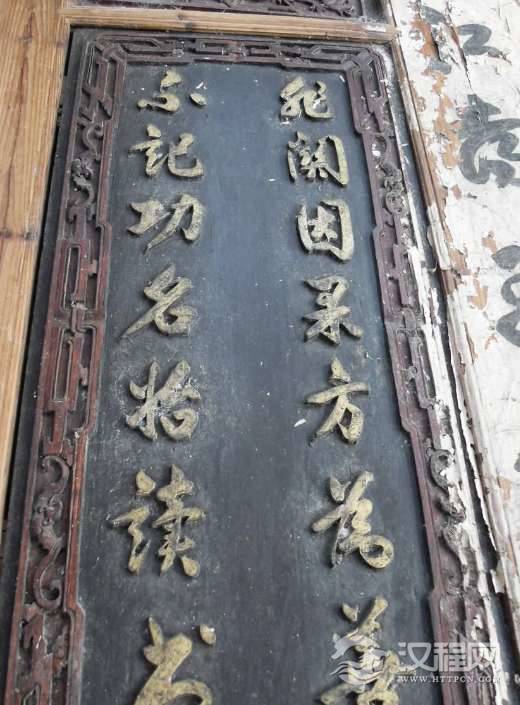 江
非關因果方為善
不記功名始讀书
汉程网
WWW.HTTPCN.COM